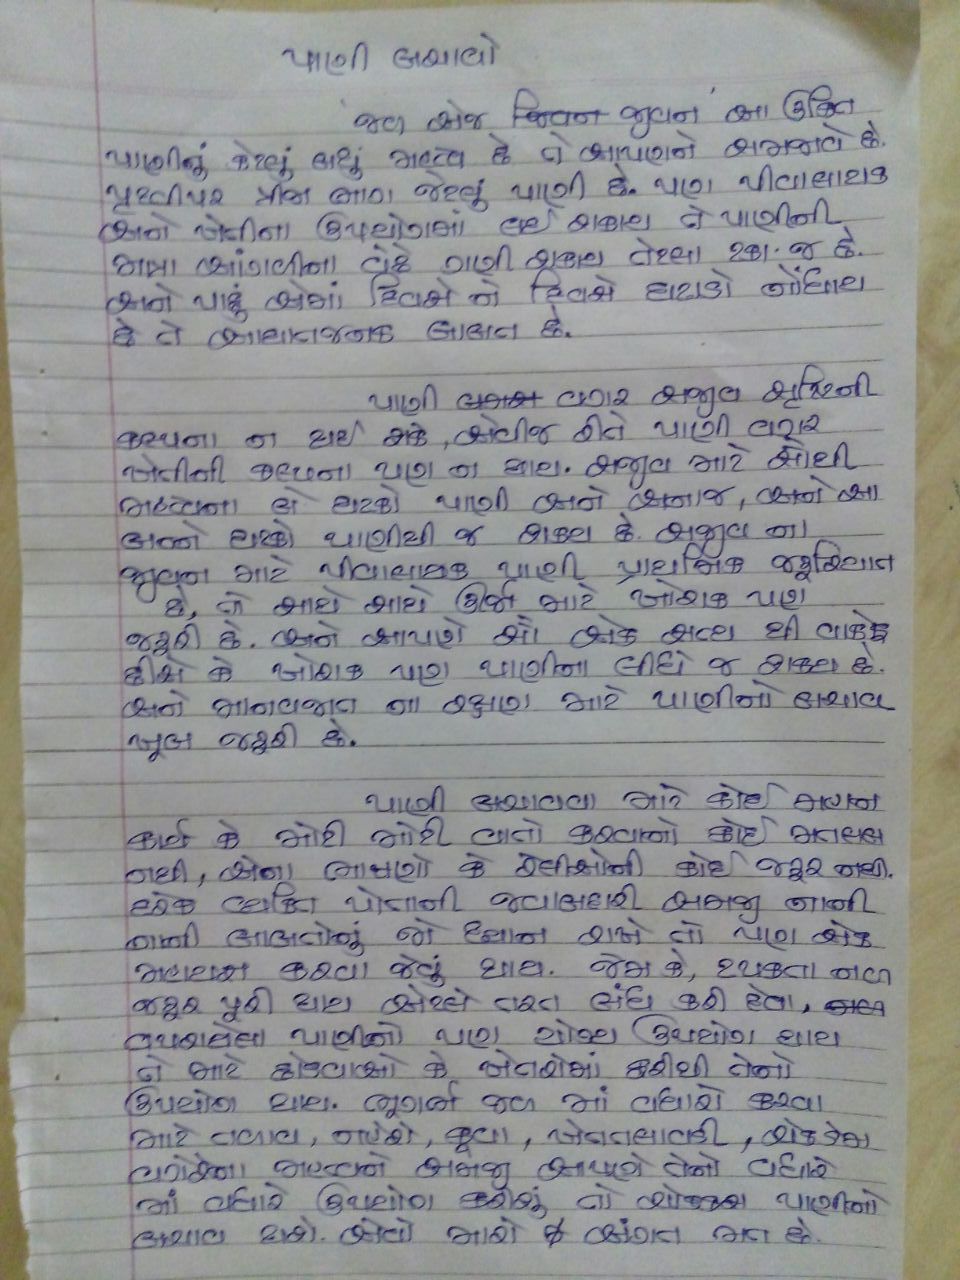 પાણી બચાવો
'જળ એજ જીવન' આ ઉક્તિ
પાણીનું કેટલું બધું મહત્વ છે તે આપણને સમજાવે છે.
પૃથ્વીપર ત્રીજા ભાગ જેટલું પાણી છે. પણ પીવાલાયક
અને ખેતીના ઉપયોગમાં લઈ શકાય તે પાણીની
માત્રા આંગળીના વેઢે ગણી શકાય તેટલા ટકા જ છે.
અને પાછું એમાં દિવસે ને દિવસે ઘટાડો નોંધાય
છે તે આઘાતજનક બાબત છે.
પાણી વગર સજીવ સૃષ્ટિની
કલ્પના ન થઈ શકે, એવીજ રીતે પાણી વગર
ખેતીની કલ્પના પણ ન થાય. સજીવ માટે સૌથી
મહત્વના બે ઘટકો પાણી અને અનાજ, અને આ
બન્ને ઘટકો પાણીથી જ શક્ય છે. સજીવ ના
જીવન માટે પીવાલાયક પાણી પ્રાથમિક જરૂરિયાત
છે, તો સાથે સાથે ઊર્જા માટે ખોરાક પણ
જરૂરી છે. અને આપણે સૌ એક સત્ય થી વાકેફ
છીએ કે ખોરાક પણ પાણીના લીધે જ શક્ય છે.
અને માનવજાત ના રક્ષણ માટે પાણીનો બચાવ
ખૂબ જરૂરી છે.
પાણી બચાવવા માટે કોઈ મહાન
કાર્ય કે મોટી મોટી વાતો કરવાનો કોઈ મતલબ
નથી, એના ભાષણો કે રેલીઓની કોઈ જરૂર નથી.
દરેક વ્યક્તિ પોતાની જવાબદારી સમજી નાની
નાની બાબતોનું જો ધ્યાન રાખે તો પણ એક
કરવા જેવું થાય. જેમ કે, ટપકતા નળ
જરૂર પૂરી થાય એટલે તરત બંધ કરી દેવા,
વપરાયેલા પાણીનો પણ યોગ્ય ઉપયોગ થાય
તે માટે કે ખેતરોમાં ફરીથી તેનો
ઉપયોગ થાય. ભૂગર્ભ જળ માં વધારો કરવા
માટે તળાવ, નહેરો, કૂવા, ખેતતલાવડી, ચેકડેમ
વગેરેના મહત્વને સમજી આપણે તેનો વધારે
માં વધારે ઉપયોગ કરીશું તો ચોક્કસ પાણીનો
બચાવ થશે. એવો મારો અંગત મત છે.